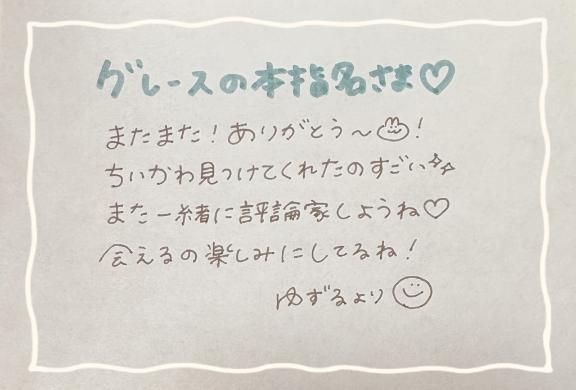 グレースの本指名さま♡
またまた!ありがとう〜!
ちいかわ見つけてくれたのすごい✨
また一緒に評論家しようね♡
会えるの楽しみにしてるね!
ゆずるより